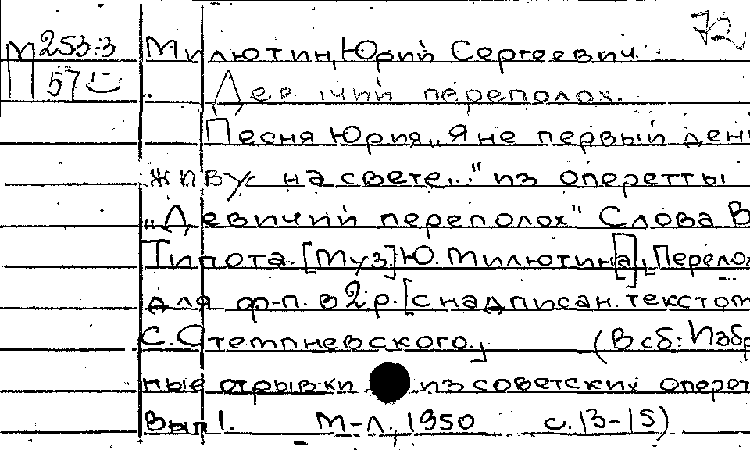 72
М 253:3 Милютин, Юрий Сергеевич.
П 57 Девичий переполох.
Песня Юрия „Я не первый день
живу на свете..." из оперетты
„Девичий переполох" Слова В
Типота. [Муз] Ю. Милютин[а], Перело
для ф-п. в 2 р. [с надписан. текстом
С. Стемпневского. (В сб: Избр
ные отрывки из советских оперет
Вып 1. М-Л, 1950 с. 13-15)